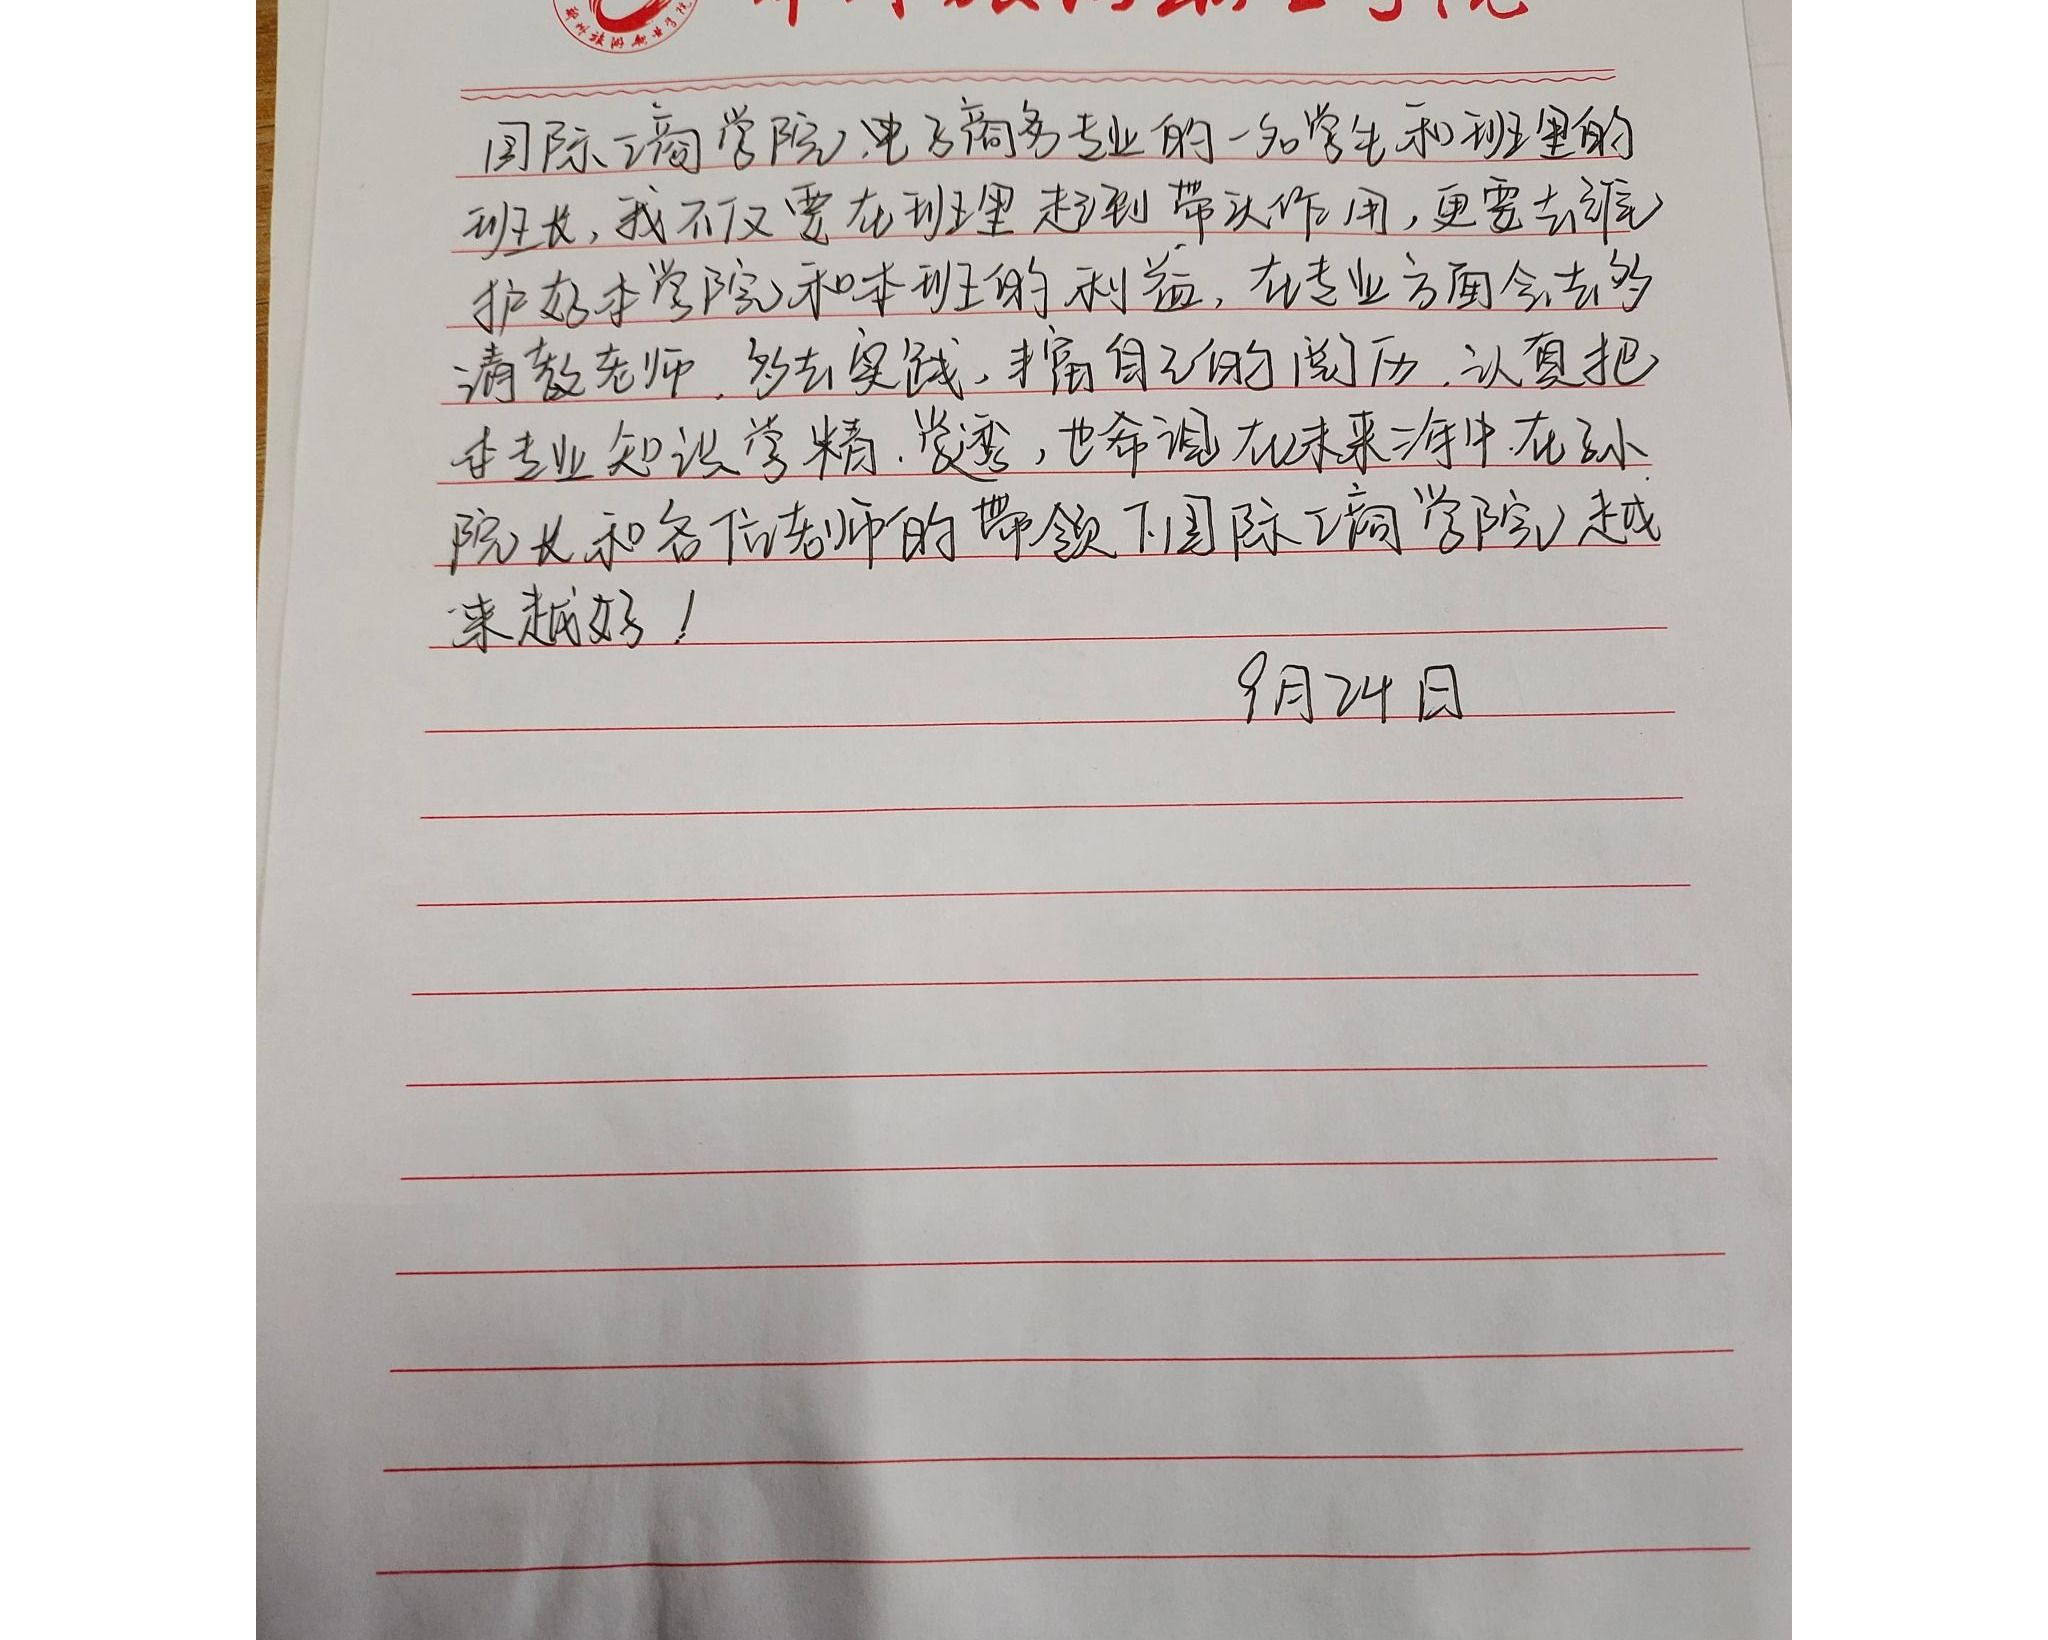 郑州旅游职业学院
郑州旅游职业学院
国际工商学院电子商务专业的一名学生和班里的
班长，我不仅要在班里起到带头作用，更要去维
护好本学院和本班的利益，在专业方面会去多
请教老师，多去实践，丰富自己的阅历，认真把
本专业知识学精、学透，也希望在未来三年中在孙
院长和各位老师的带领下国际工商学院越
来越好！
9月24日